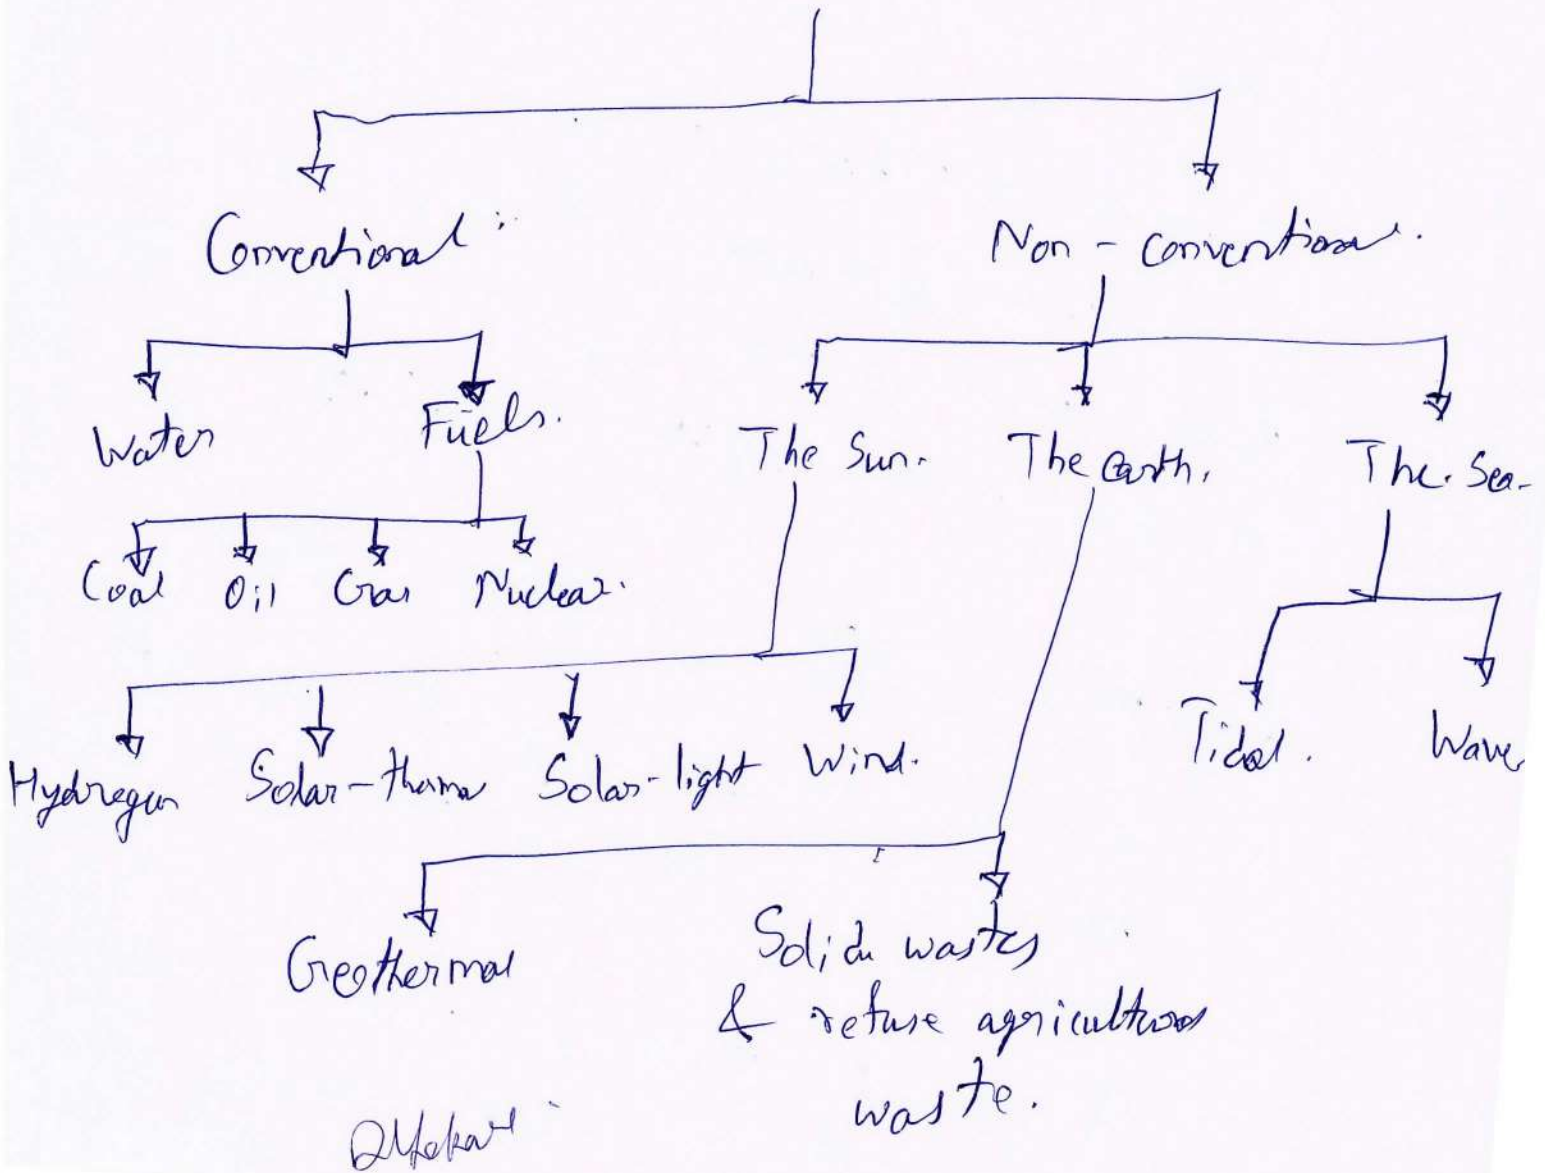 Conventional :
Non - conventional.
Water
Fuels.
The Sun.
The earth.
The. Sea.
Coal
Oil
Gas
Nuclear.
Hydrogen
Solar-thermal
Solar-light
Wind.
Tidal.
Wave
Geothermal
Solid wastes
& refuse agricultural
waste.